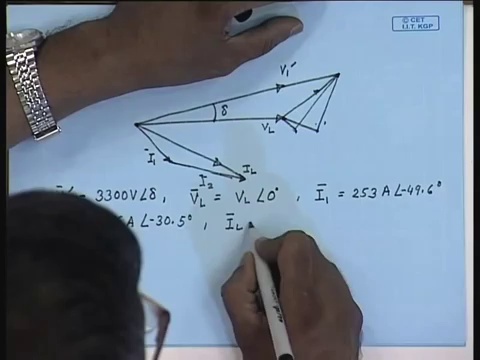 © CET
I.I.T. KGP
V₁'
δ
V_L
Ī₁
I_L
Ī₂
= 3300V∠δ , V̄_L = V_L∠0° , Ī₁ = 253 A∠-49.6°
A∠-30.5° , Ī_L